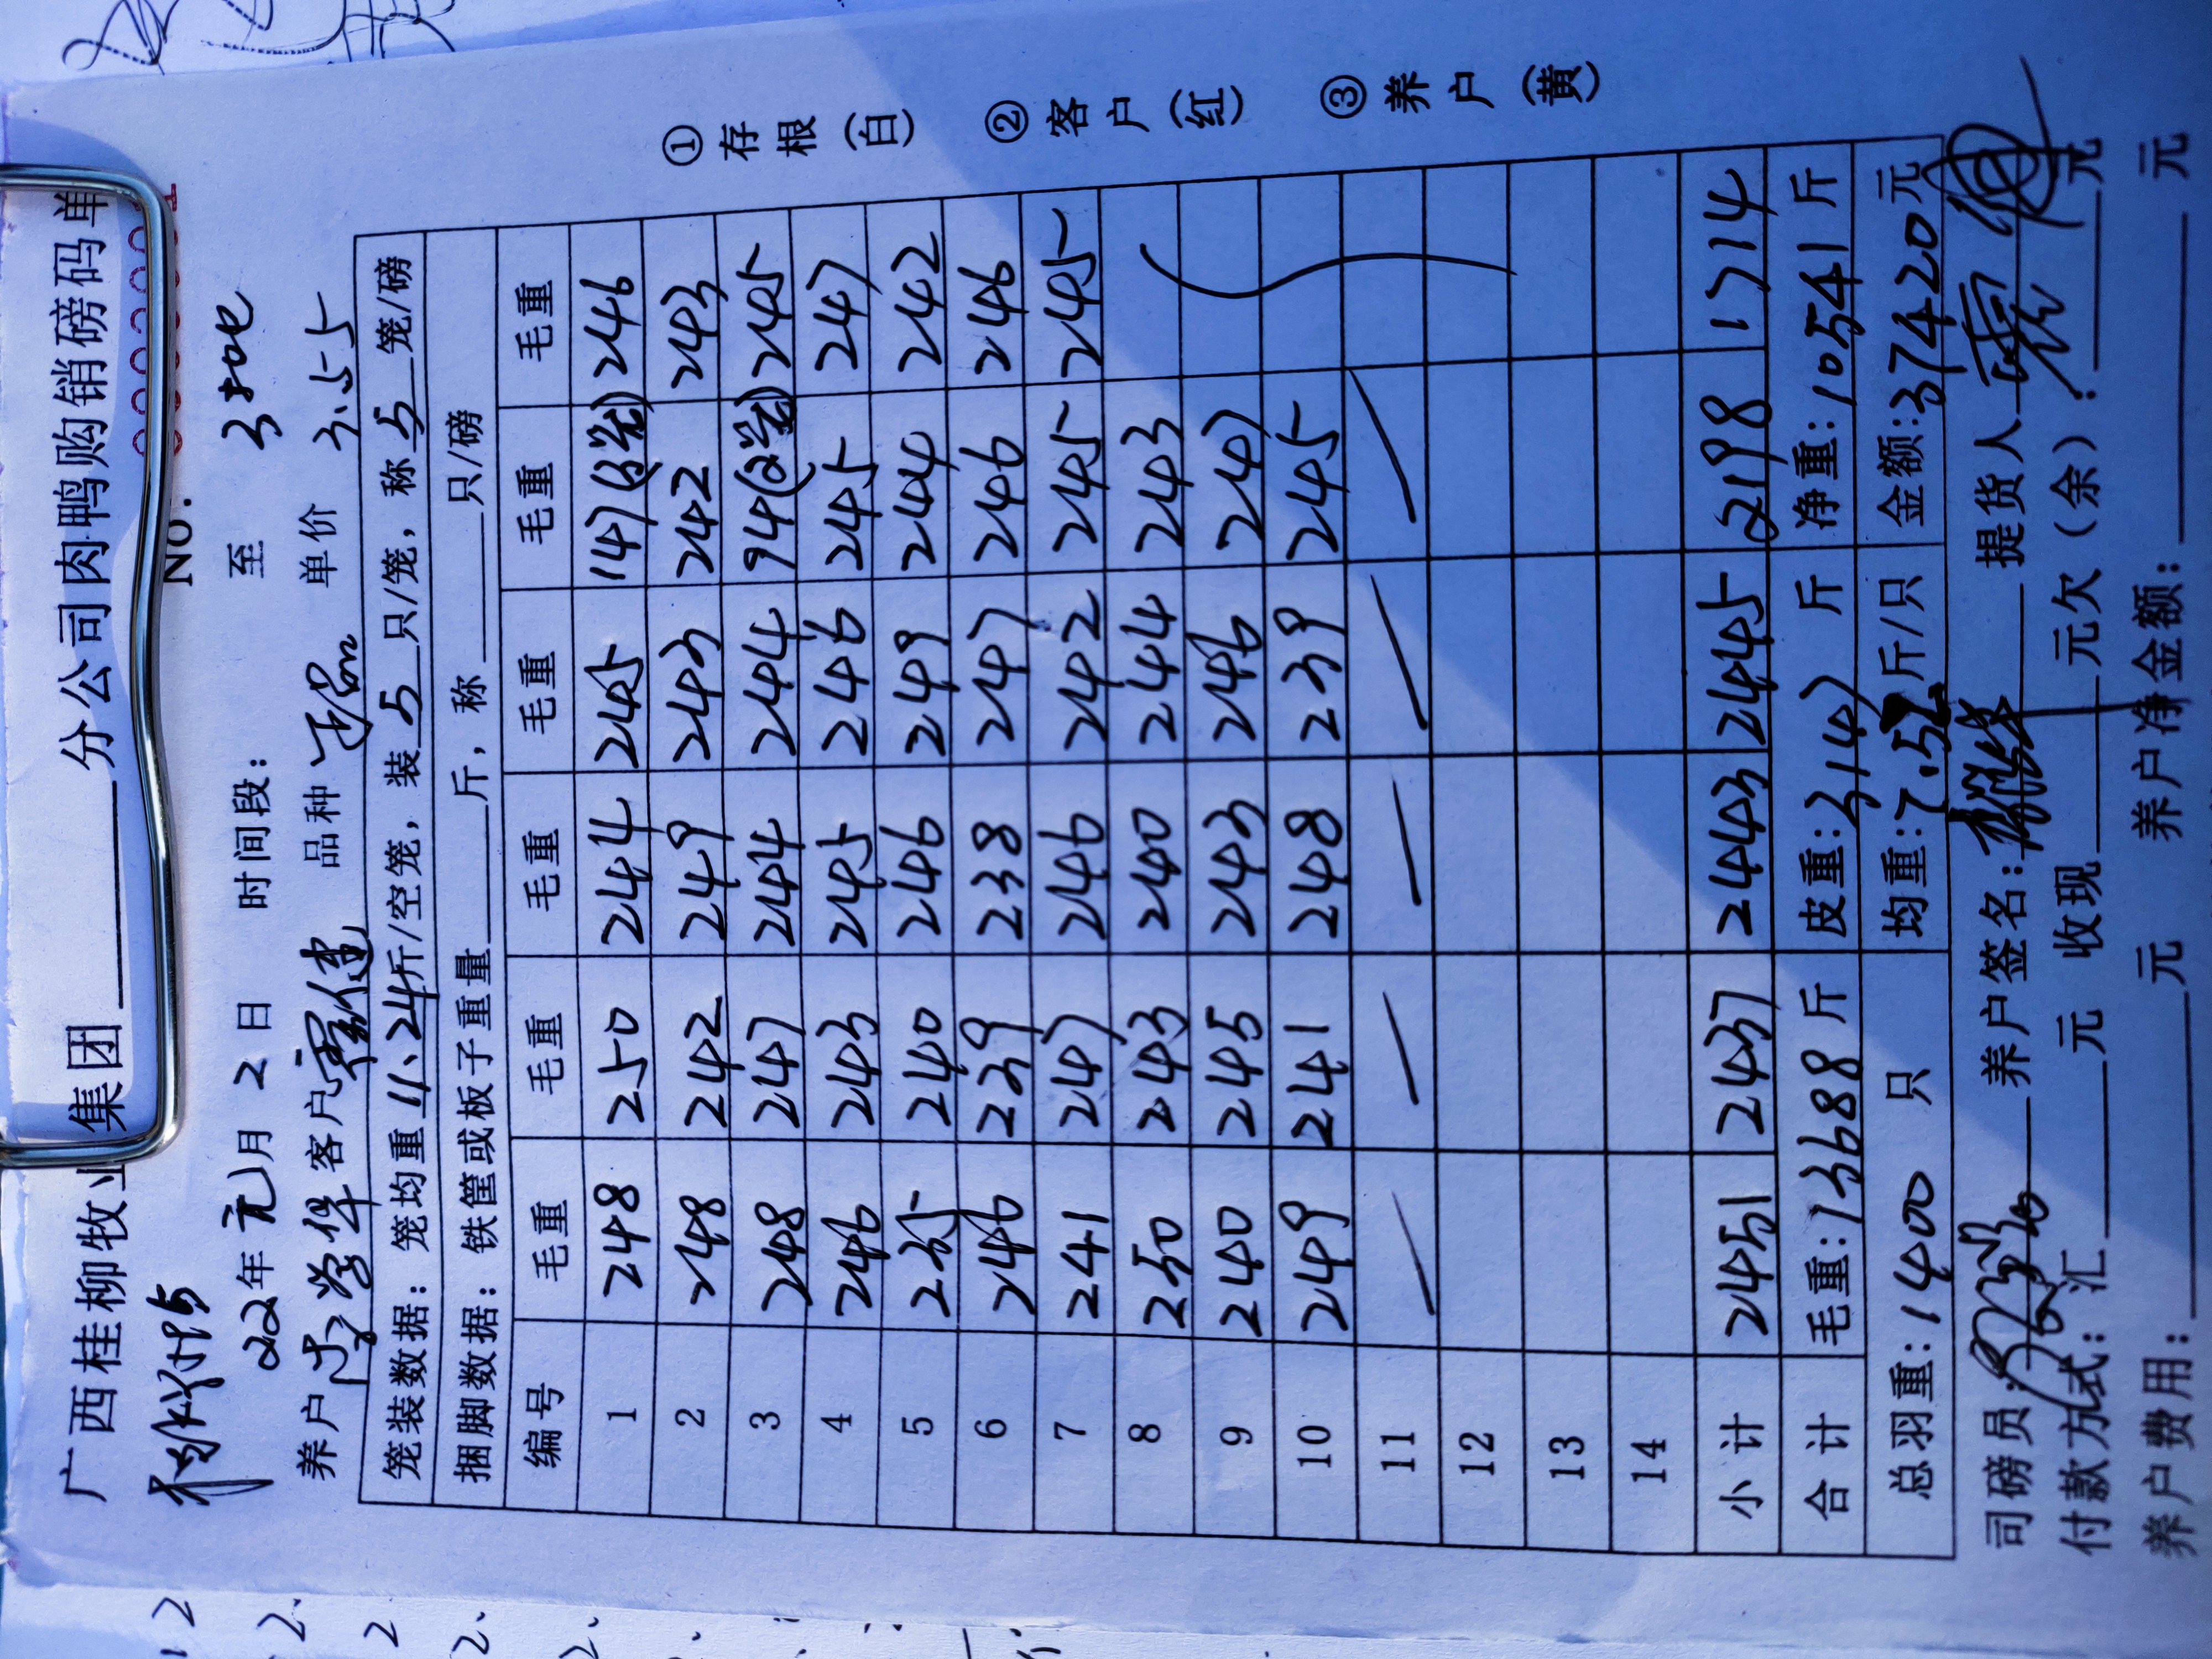 广西桂柳牧业集团 分公司肉鸭购销磅码单
No.
22年元月2日 时间段: 至
养户 客户 品种 单价 3.55
笼装数据: 笼均重11.24斤/空笼, 装5只/笼, 称5笼/磅
捆脚数据: 铁筐或板子重量 斤, 称 只/磅
编号 毛重 毛重 毛重 毛重 毛重 毛重
1 248 250 244 245 147(3笼) 246
2 248 242 249 243 242 243
3 248 247 244 244 94(2笼) 245
4 246 243 245 246 245 247
5 235 240 246 249 244 242
6 246 239 238 247 246 246
7 241 247 246 242 245 245
8 250 243 240 244 243
9 240 245 243 246 247
10 249 241 248 239 245
11
12
13
14
小计 2451 2437 2443 2445 2198 1714
合计 毛重:13688斤 皮重:3147斤 净重:10541斤
总羽重:1400只 均重:7.52斤/只 金额:37420元
司磅员: 养户签名: 提货人
付款方式:汇 元 收现 元欠(余): 元
养户费用: 元 养户净金额: 元
①存根(白) ②客户(红) ③养户(黄)